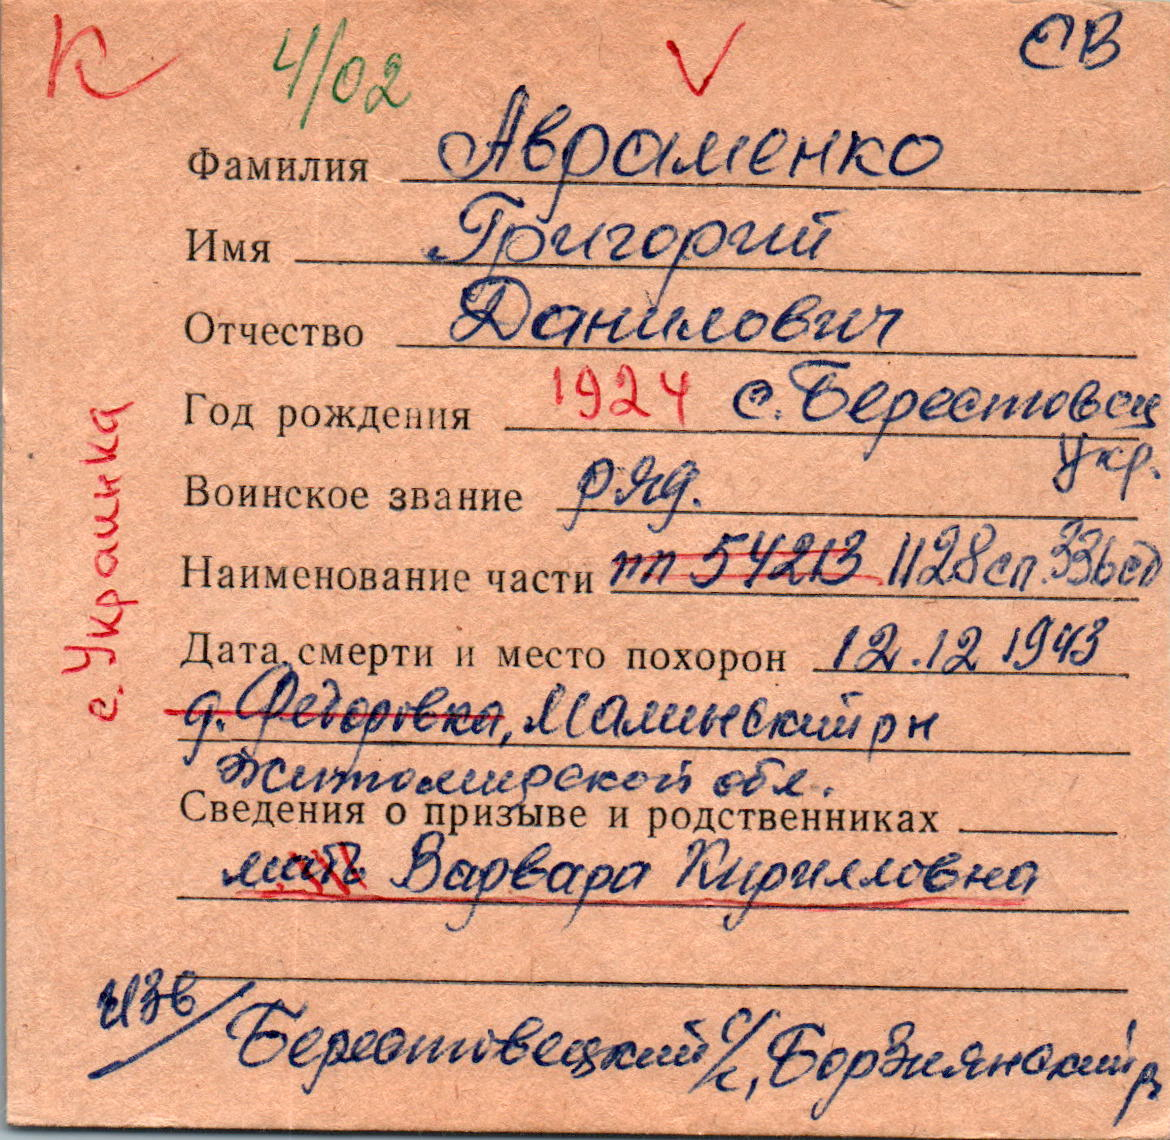 К 4/02 СВ
Фамилия Авраменко
Имя Григорий
Отчество Данилович
Год рождения 1924 с. Берестовец
Укр.
Воинское звание ряд.
Наименование части пп 54213 1128 сп 336 сд
Дата смерти и место похорон 12.12 1943
д. Федоровка, Малинский рн
Житомирской обл.
Сведения о призыве и родственниках
мать Варвара Кирилловна
изв/ Берестовецкий с/с, Борзнянский р
с. Украинка